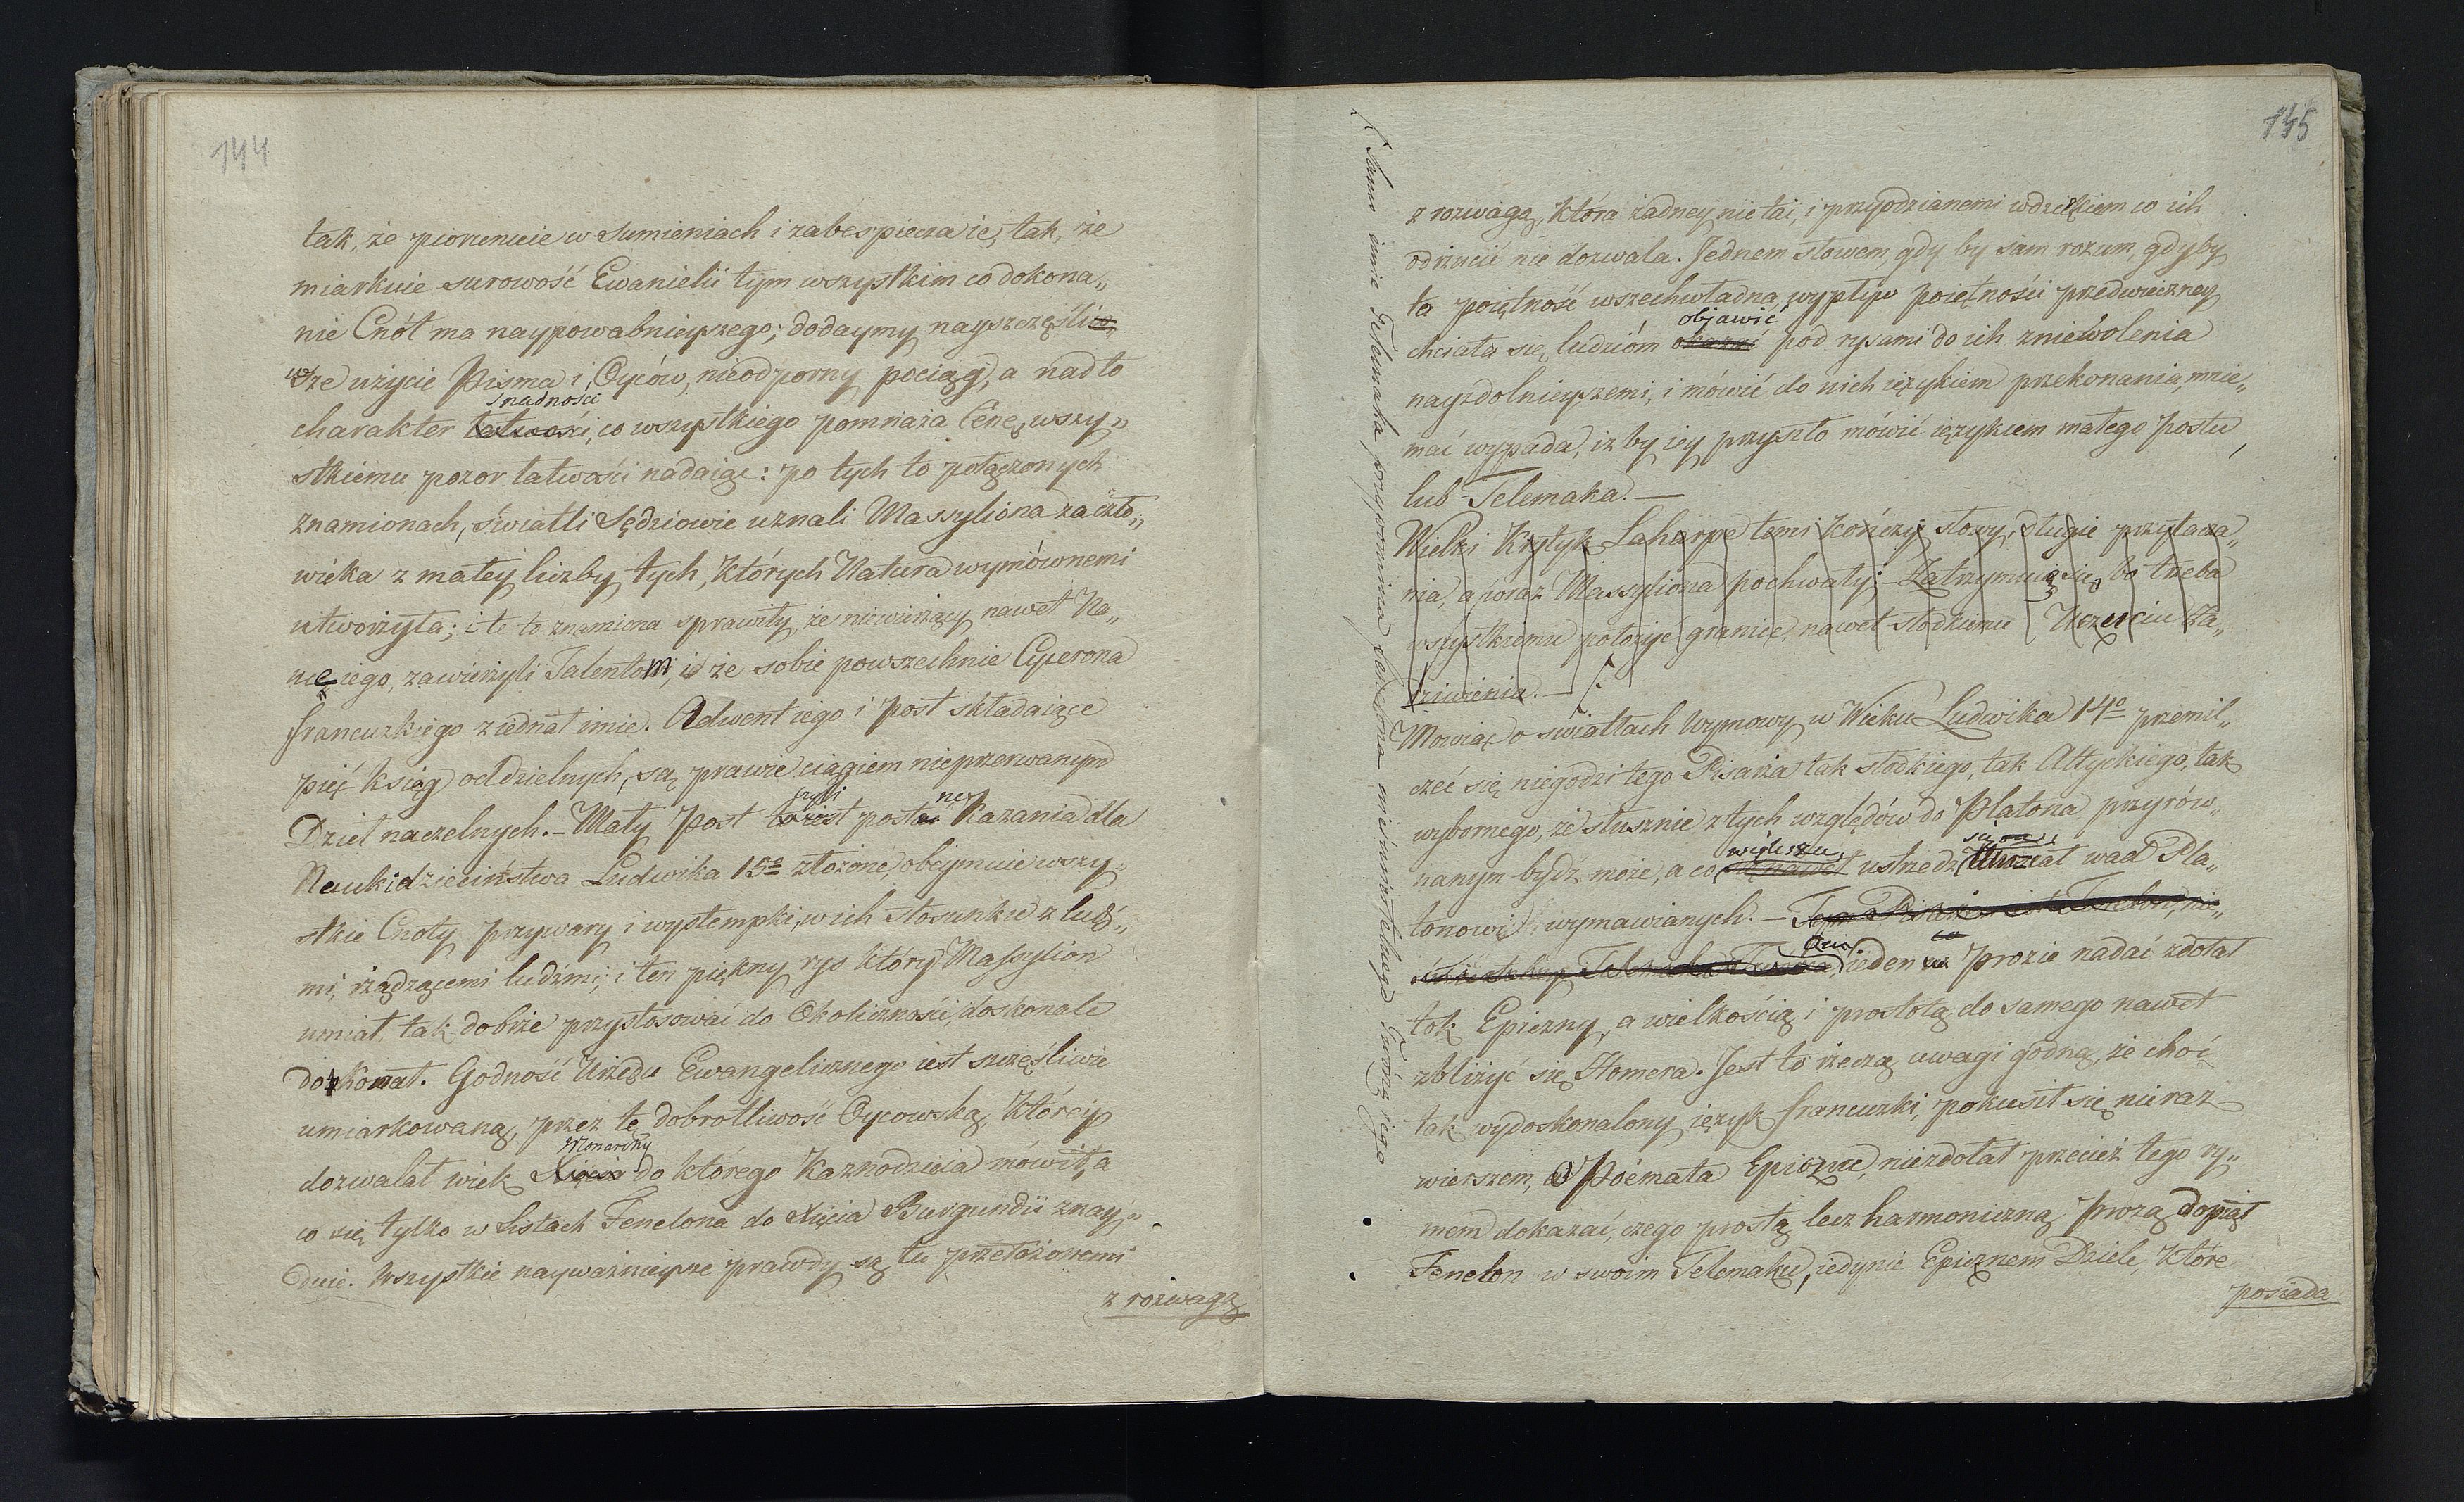 144
tak, że piorunuie w Sumieniach i zabespiecza ie, tak, że
miarkuie surowość Ewanielii tym wszystkim co dokona„
nie Cnót ma naypowabnieyszego; dodaymy nayszczęśliw„
wsze użycie Pisma i Oyców, nieodporny pociąg, a nadto
snadności
charakter łatwości, co wszystkiego pomnaża Cenę, wszy„
stkiemu pozor łatwości nadaiąc: po tych to połączonych
znamionach, światli Sędziowie uznali Massyliona za czło„
wieka z małey liczby tych, których Natura wymównemi
utworzyła; i te to znamiona sprawiły, że niewierzący nawet Na„
uce iego, zawierzyli Talentom, i że sobie powszechnie Cycerona
francuzkiego ziednał imie. Adwent iego i Post składaiące
pięć ksiąg oddzielnych, są prawie ciągiem nieprzerwanym
czyli ne
Dzieł naczelnych. – Mały Post to iest postne Kazania dla
Nauki dzieciństwa Ludwika 15º złożone, obeymuie wszy„
stkie Cnoty przywary i wystempki, w ich stosunku z ludź„
mi, rządzącemi ludźmi; i ten piękny rys który Massylion
umiał tak dobrze przystosować do Okoliczności, doskonale
dokonał. Godność Urzędu Ewangelicznego iest szczęśliwie
umiarkowaną, przez tę dobrotliwość Oycowską, którey
Monarchy
dozwalał wiek Xięcia do którego Kaznodzieia mówił, a
co się tylko w Listach Fenelona do Xięcia Burgundii znay„
duie. Wszystkie nayważnieysze prawdy są tu przełożonemi
z rozwagą
145
z rozwagą, która żadney nie tai, i przyodzianemi wdziękiem co ich
odrzucić nie dozwala. Jednem słowem, gdy by sam rozum, gdyby
ta poiętność wszechwładna, wypływ poiętności przedwieczney
objawić
chciała się ludzióm okazać pod rysami do ich zniewolenia
nayzdolnieyszemi, i mówić do nich ięzykiem przekonania, mnie„
mać wypada, iż by iey przyszło mówić ięzykiem małego Postu,
lub Telemaka. —
Wielki Krytyk Laharpe temi kończy słowy, długie przytacza„
nia, a wraz Massyliona pochwały: – Zatrzymuię się, bo trzeba
wszystkiemu położyć granice, nawet słodkiemu Uczuciu Za„
dziwienia. –
Mowiąc o światłach Wymowy w Wieku Ludwika 14º przemil„
czeć się niegodzi tego Pisarza tak słodkiego, tak Attyckiego, tak
wybornego, że słusznie z tych względów do Platona przyrów„
większa,
nanym bydź może, a co nawet ustrzedz umiał wad Pla„
tonowi wymawianych. –
On co
ieden Prozie nadać zdołał
tok Epiczny, a wielkością i prostotą do samego nawet
zbliżyć się Homera. Jest to rzeczą uwagi godną, że choć
tak wydoskonalony ięzyk francuzki, pokusił się nieraz
wierszem, o Poemata Epiczne, niezdołał przecież tego ry„
mem dokazać, czego prostą lecz harmoniczną Prozą dopiął
Fenelon w swoim Telemaku, iedynie Epicznem Dziele, które
posiada
Samo imie Telemaka, przypomina Fenelona nieśmiertelnego Twórcę iego